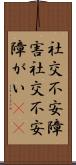 社交不安障
害社交不安
障がい